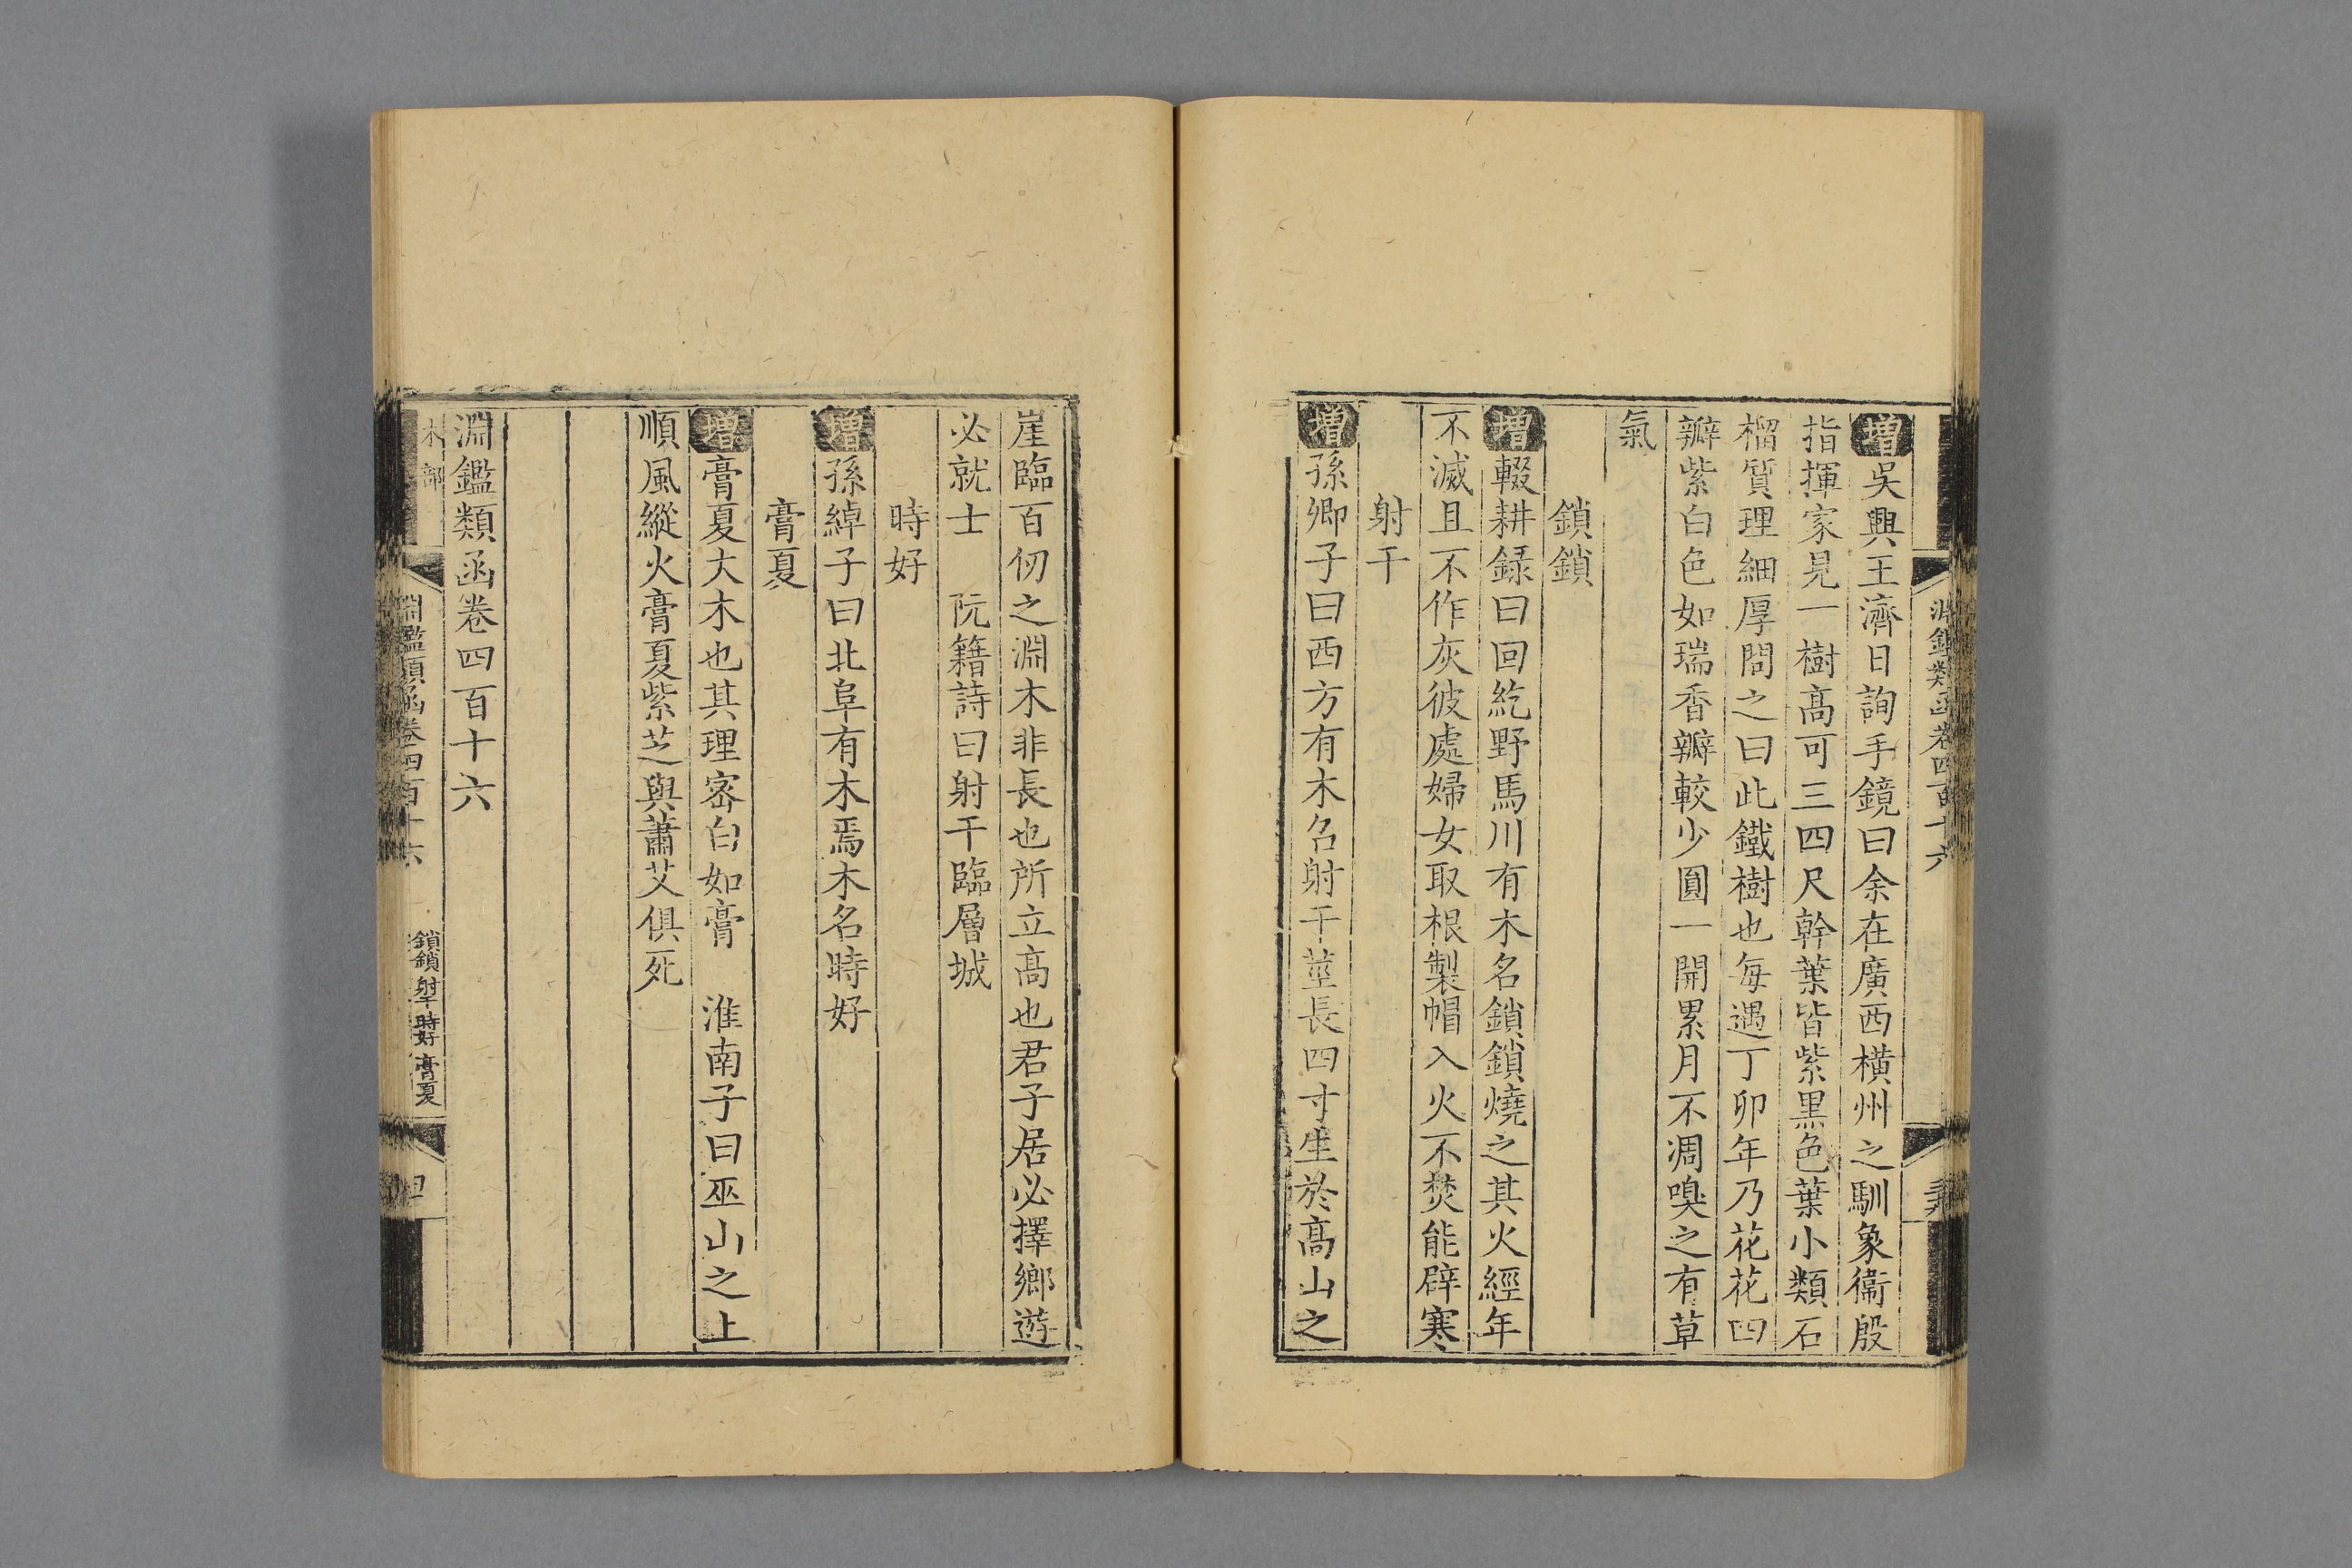 淵鑑類函卷四百十六
增吳興王濟日詢手鏡曰余在廣西橫州之馴象衞殷
指揮家見一樹髙可三四尺幹葉皆紫黑色葉小類石
榴質理細厚問之曰此鐵樹也每遇丁卯年乃花花四
瓣紫白色如瑞香瓣較少圓一開累月不凋嗅之有草
氣
鎖鎖
增輟耕録曰回紇野馬川有木名鎖鎖燒之其火經年
不滅且不作灰彼處婦女取根製帽入火不焚能辟寒
射干
增孫卿子曰西方有木名射干莖長四寸生於髙山之
崖臨百仞之淵木非長也所立髙也君子居必擇鄉遊
必就士 阮籍詩曰射干臨層城
時好
增孫綽子曰北阜有木焉木名時好
膏夏
增膏夏大木也其理密白如膏 淮南子曰巫山之上
順風縱火膏夏紫芝與蕭艾俱死
淵鑑類函卷四百十六
木部
淵鑑類函卷四百十六
鎖鎖 射干 時好 膏夏